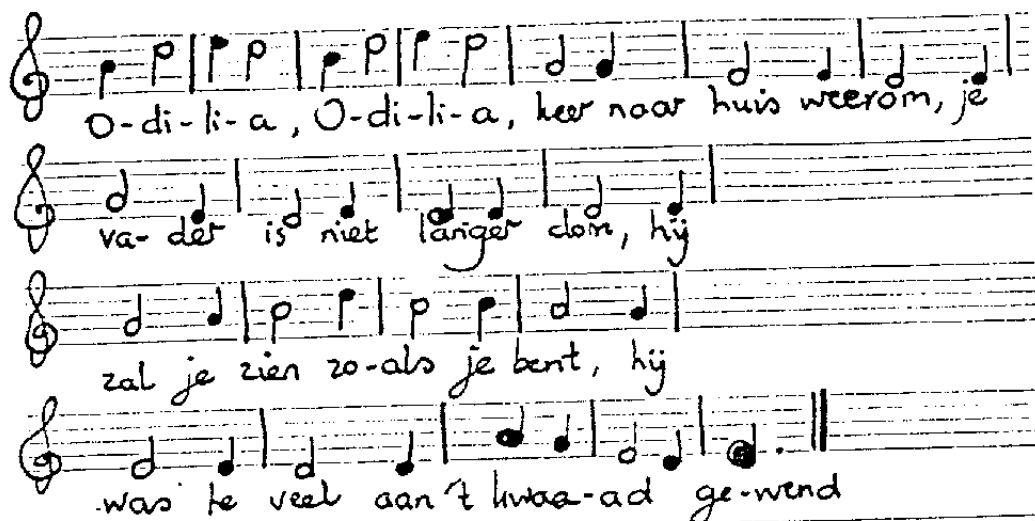 O-di-li-a, O-di-li-a, keer naar huis weerom, je
va-der is niet langer dom, hij
zal je zien zo-als je bent, hij
was te veel aan 't kwaa-ad ge-wend